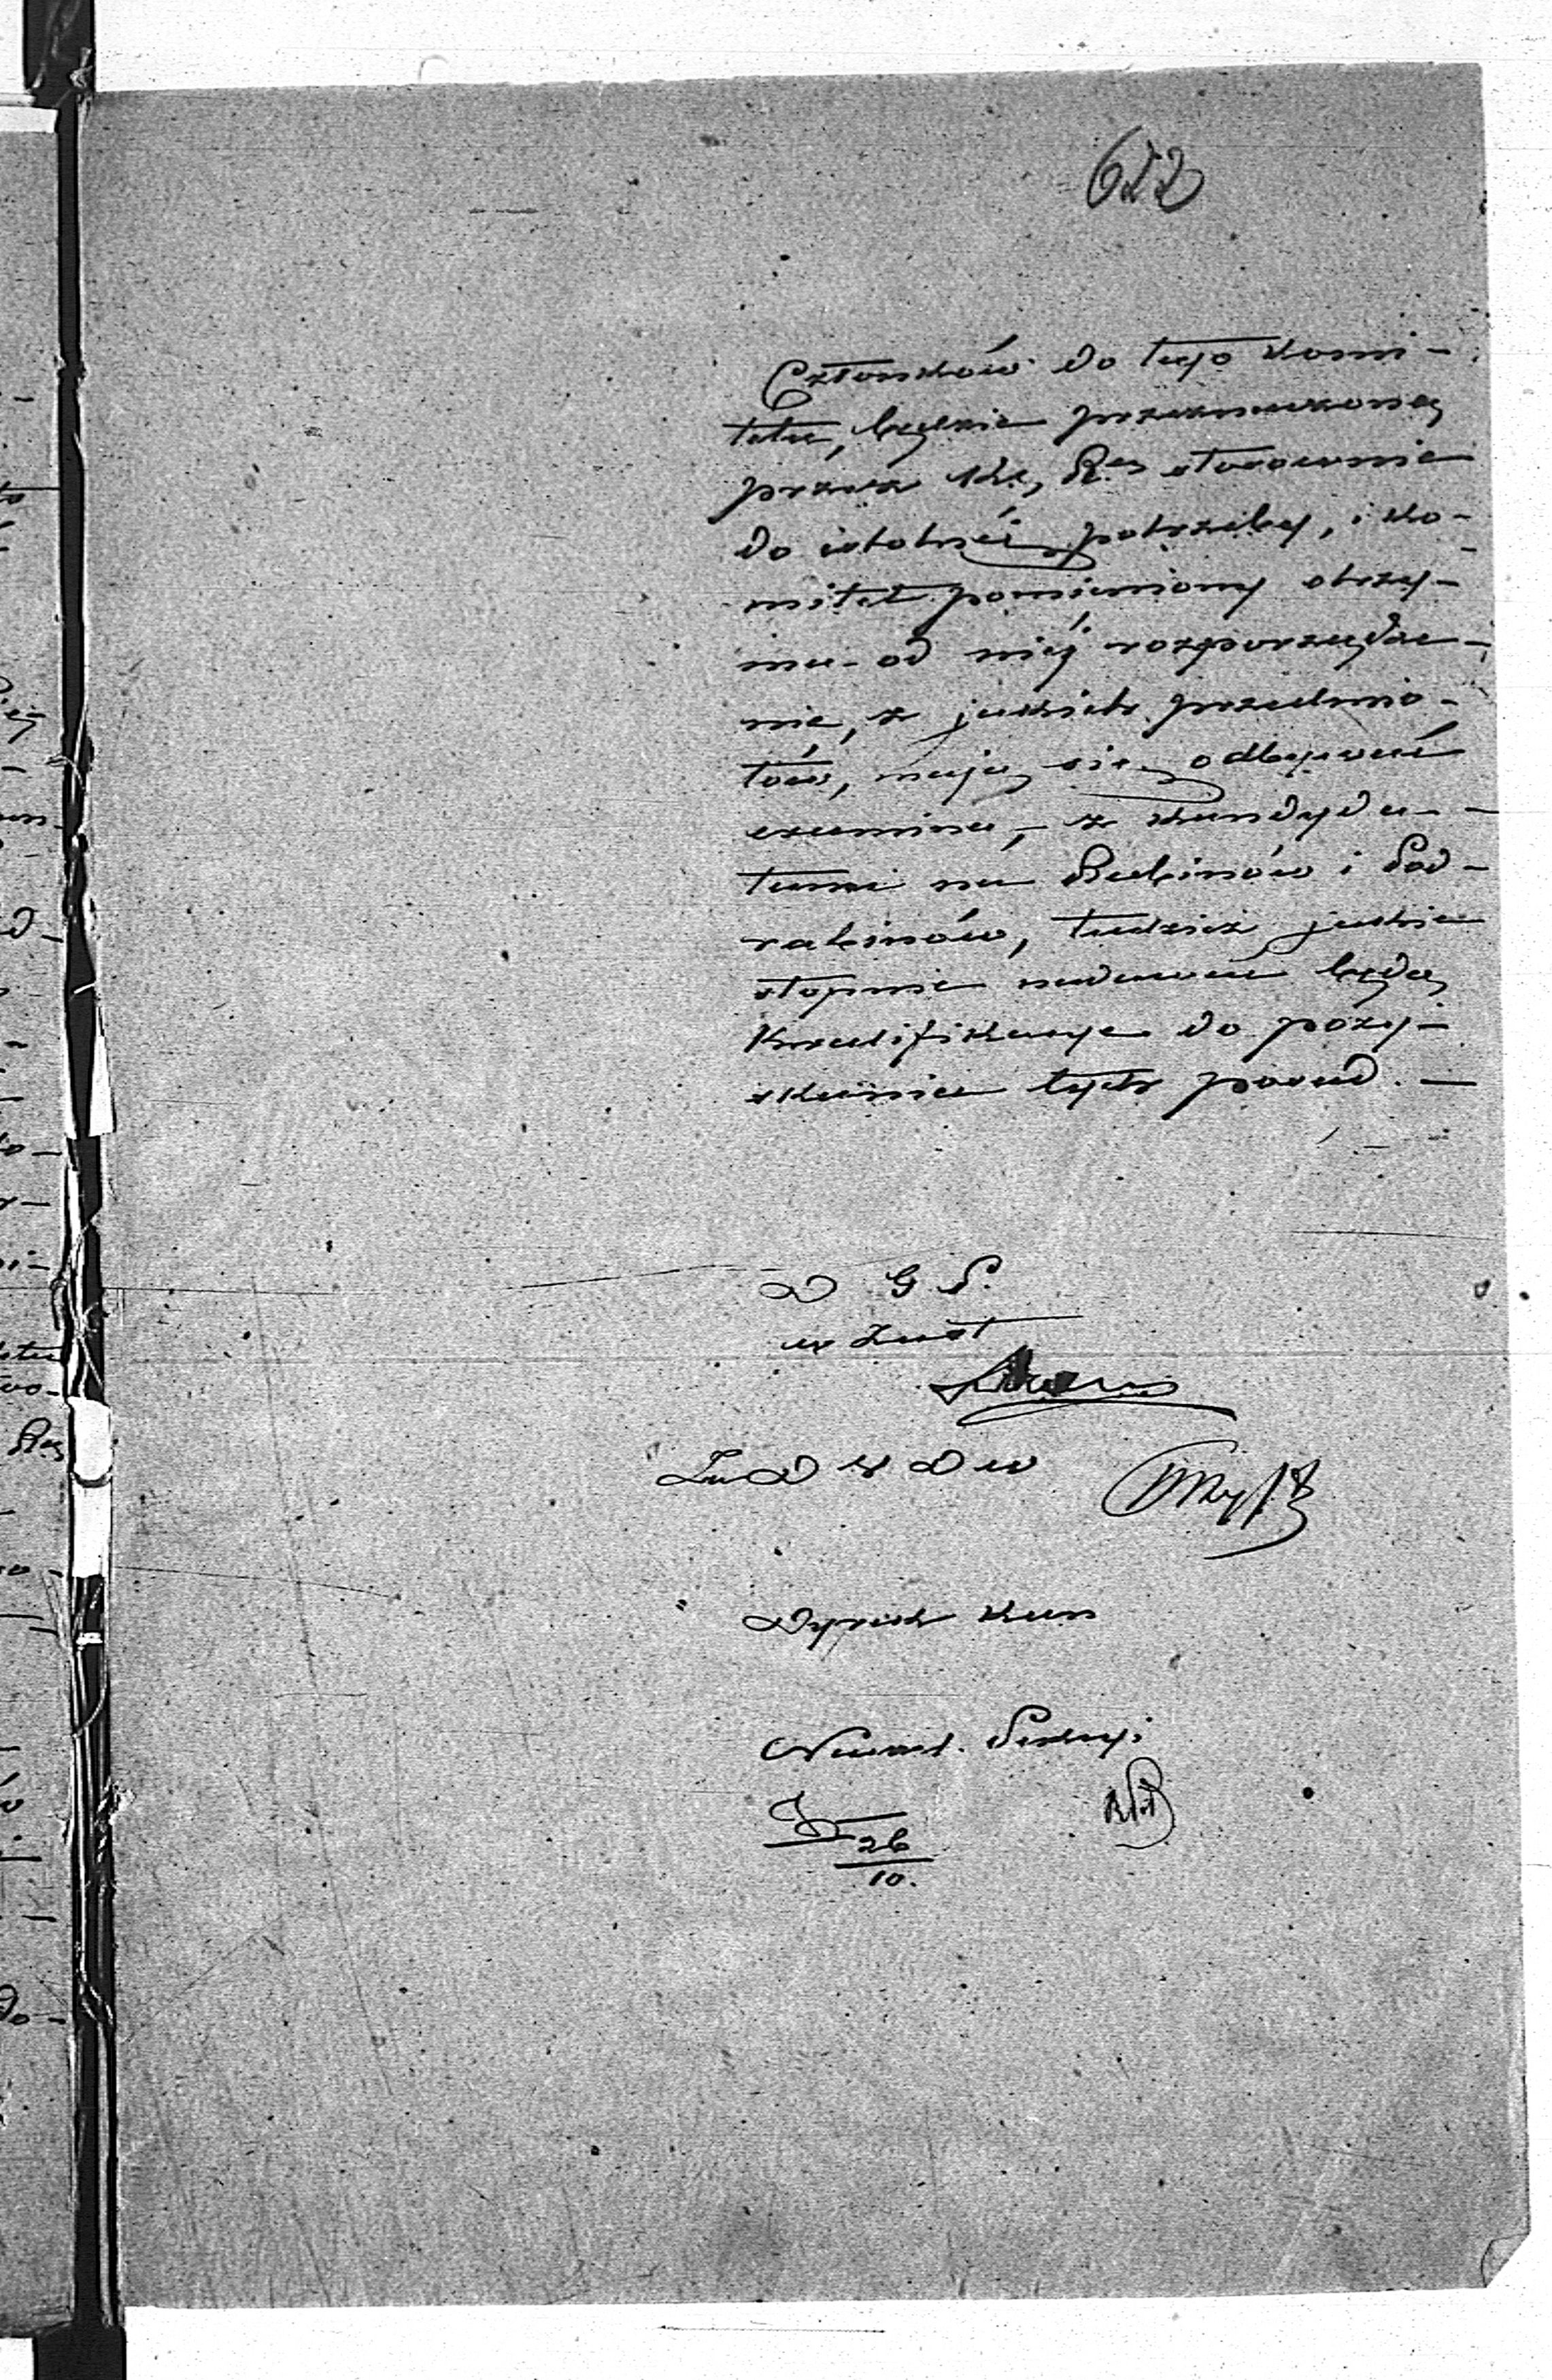 622
Członków do tego Komi-
tetu, będzie przeznaczoną
przez Kę, Rą stosownie
do istotnéj potrzeby, i Ko-
mitet pomieniony otrzy-
ma od niéj rozporządze-
nie, z jakich przedmio-
tów, mają się odbywać
examina, z Kandyda-
tami na Rabinów i Pod-
rabinów, tudzież jakie
stopnie nadawać będą
Kwalifikacye do pozy-
skania tych posad. —
D G P.
w Zast
Za D W D W
Dyrek Kan
Naczel. Sekcyi
26
10.